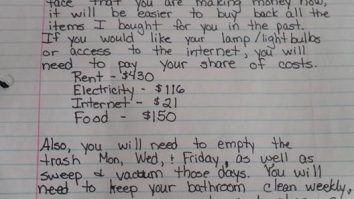 face that you are making money now,
it will be easier to buy back all the
items I bought for you in the past.
If you would like your lamp/lightbulbs
or access to the internet, you will
need to pay your share of costs.
Rent - $430
Electricity - $116
Internet - $21
Food - $150
Also, you will need to empty the
trash Mon, Wed, + Friday, as well as
sweep & vacuum those days. You will
need to keep your bathroom clean weekly,